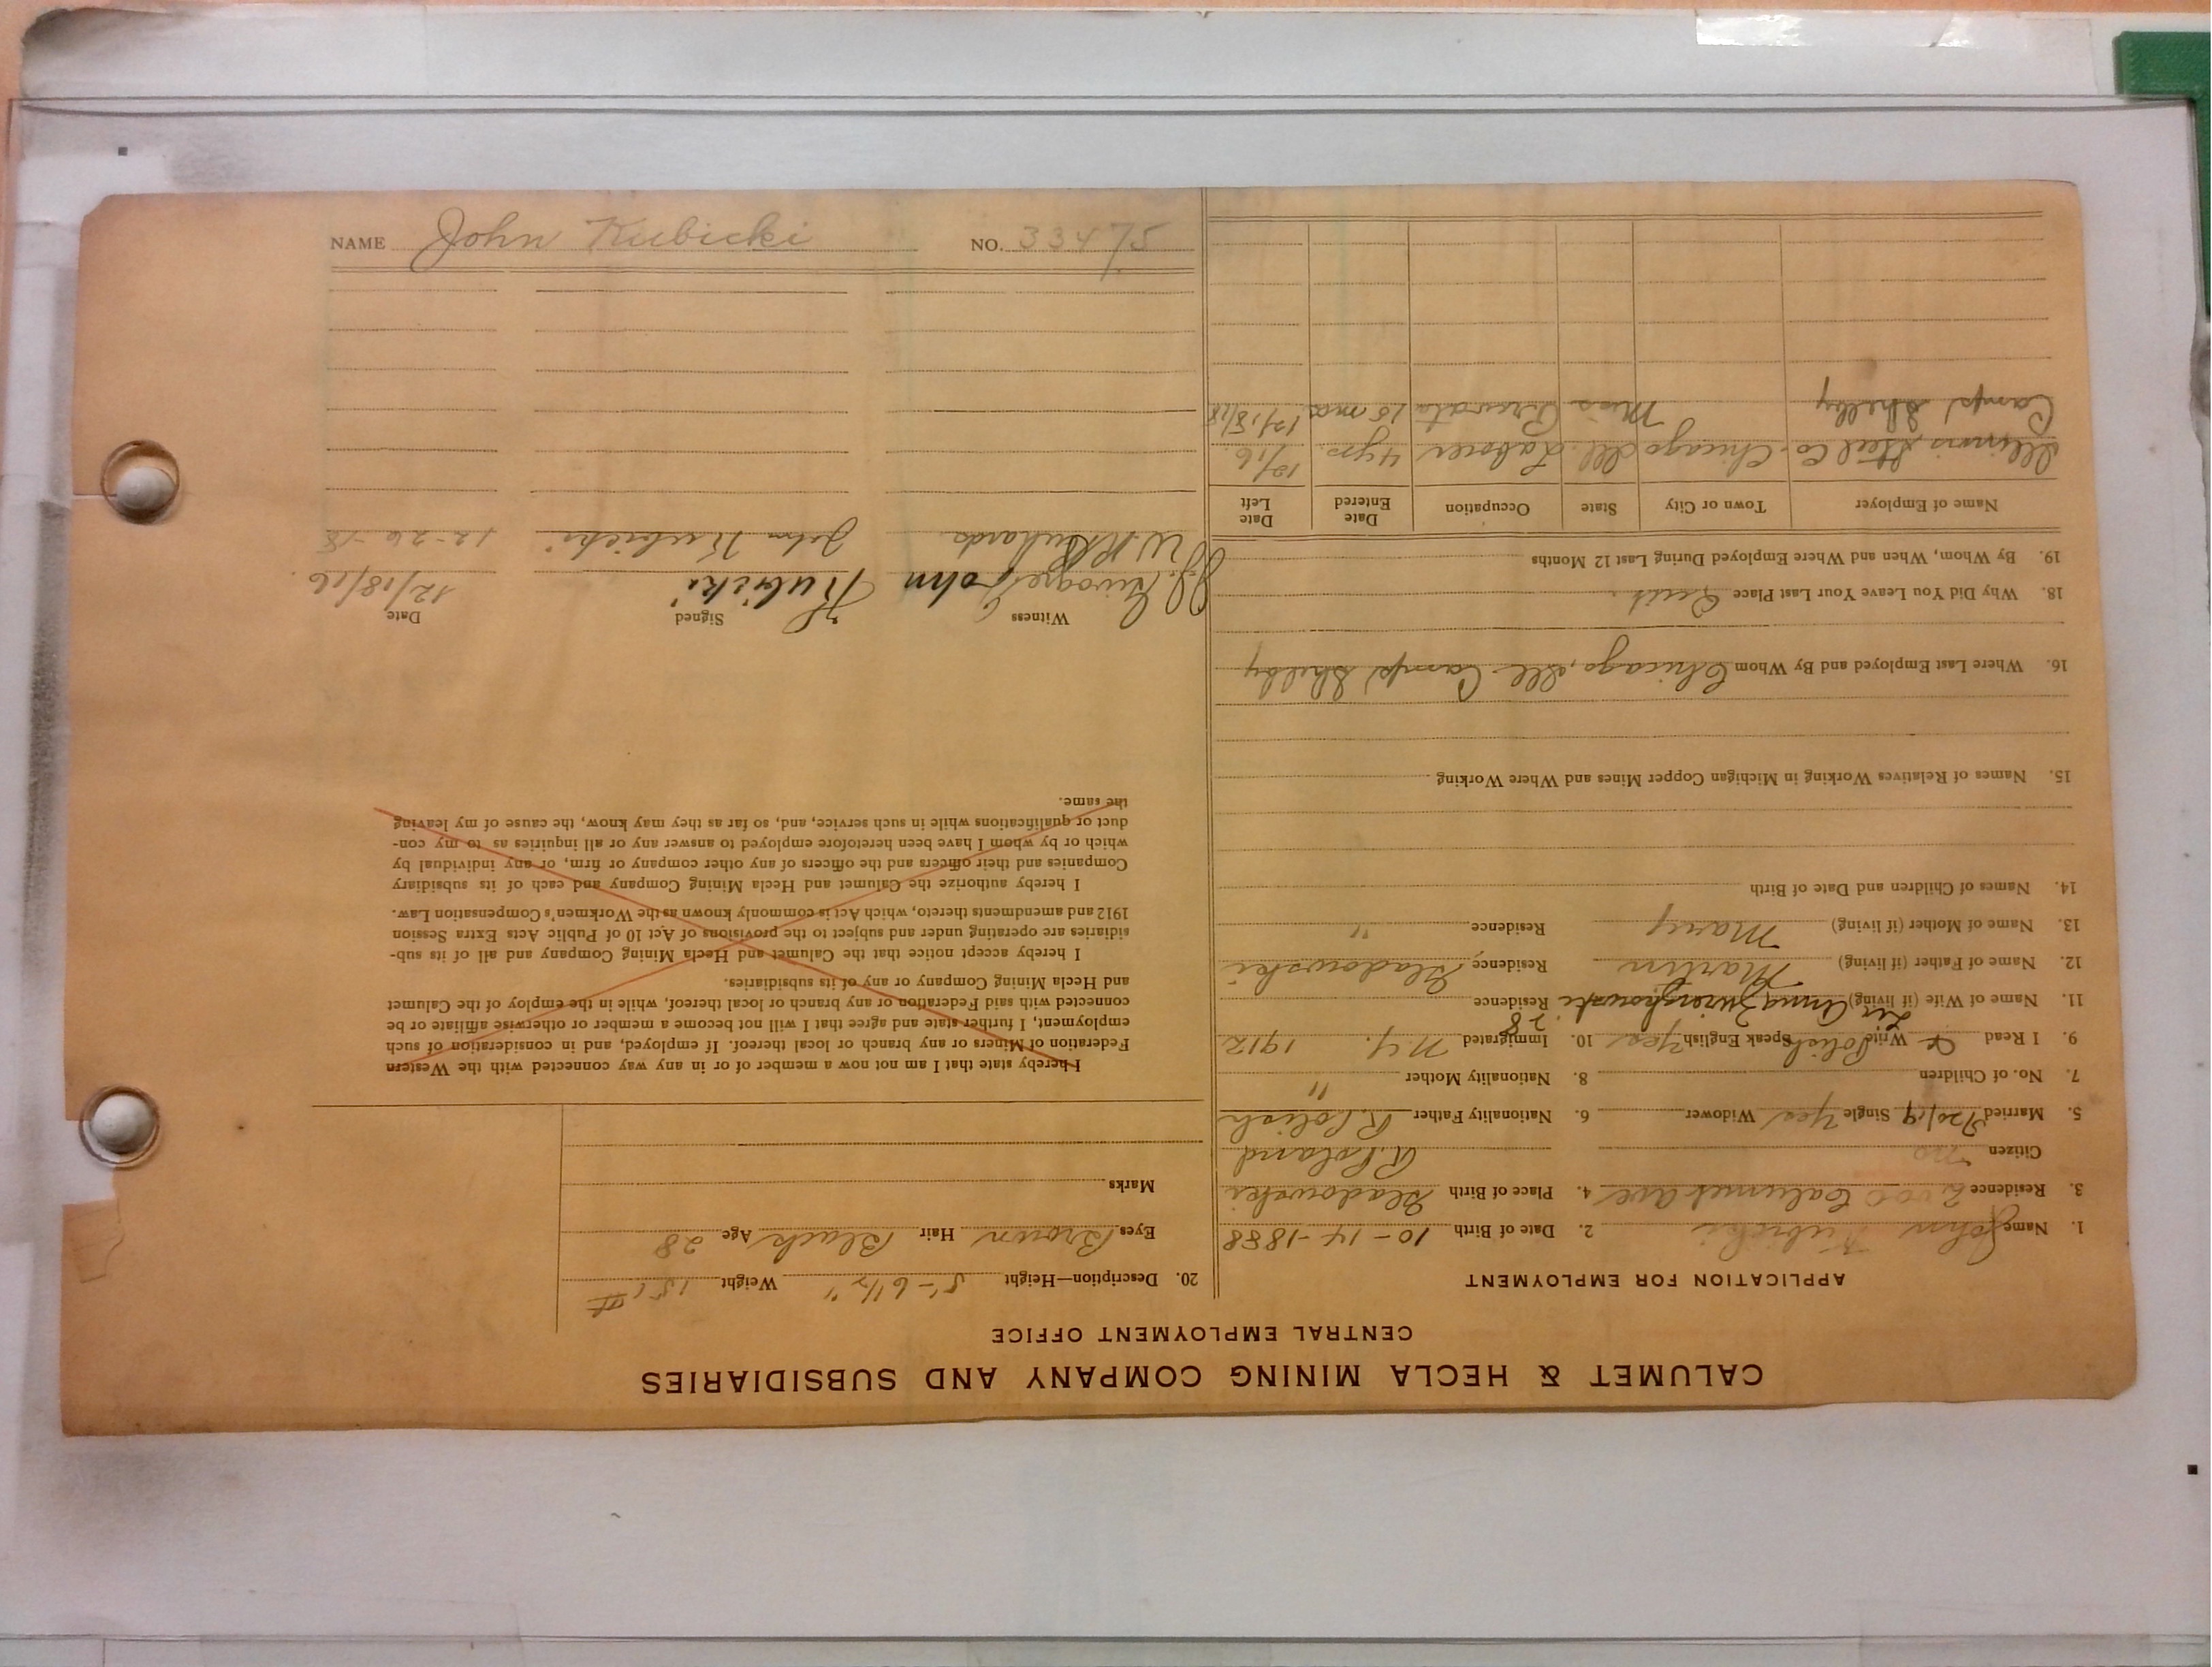 CALUMET & HECLA MINING COMPANY AND SUBSIDIARIES
CENTRAL EMPLOYMENT OFFICE
APPLICATION FOR EMPLOYMENT
1. Name John Kubicki 2. Date of Birth 10-14-1888
3. Residence Calumet Ave 4. Place of Birth Gladowski
Citizen no R. Poland
5. Married Single Yes Widower 6. Nationality Father R. Polish
7. No. of Children 8. Nationality Mother "
9. I Read & Write Polish Speak English Yes 10. Immigrated N.Y. 1912
28
11. Name of Wife (if living) Anna Residence
12. Name of Father (if living) Martin Residence Gladowski
13. Name of Mother (if living) Mary Residence "
14. Names of Children and Date of Birth
15. Names of Relatives Working in Michigan Copper Mines and Where Working
16. Where Last Employed and By Whom Chicago, Ill Camp Shelby
18. Why Did You Leave Your Last Place Quit.
19. By Whom, When and Where Employed During Last 12 Months
Name of Employer Town or City State Occupation Date Entered Date Left
Illinois Steel Co. Chicago Ill. Laborer 4 yrs. 12/16
Camp Shelby Miss Private 15 mo. 12/18/18
20. Description—Height 5'-6 1/2" Weight 151#
Eyes Brown Hair Black Age 28
Marks
I hereby state that I am not now a member of or in any way connected with the Western
Federation of Miners or any branch or local thereof. If employed, and in consideration of such
employment, I further state and agree that I will not become a member or otherwise affiliate or be
connected with said Federation or any branch or local thereof, while in the employ of the Calumet
and Hecla Mining Company or any of its subsidiaries.
I hereby accept notice that the Calumet and Hecla Mining Company and all of its sub-
sidiaries are operating under and subject to the provisions of Act 10 of Public Acts Extra Session
1912 and amendments thereto, which Act is commonly known as the Workmen's Compensation Law.
I hereby authorize the Calumet and Hecla Mining Company and each of its subsidiary
Companies and their officers and the officers of any other company or firm, or any individual by
which or by whom I have been heretofore employed to answer any or all inquiries as to my con-
duct or qualifications while in such service, and, so far as they may know, the cause of my leaving
the same.
Witness Signed Date
John Kubicki 12/18/16
W R Richards John Kubicki 12-26-18
NAME John Kubicki NO. 33475